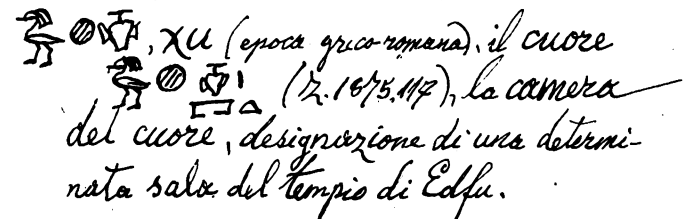 𓅜𓐍𓄣, χu (epoca greco-romana), il cuore
𓅜𓐍𓄣𓏤𓉐𓏏 (Z. 1875, 117), la camera
del cuore, designazione di una determi-
nata sala del tempio di Edfu.